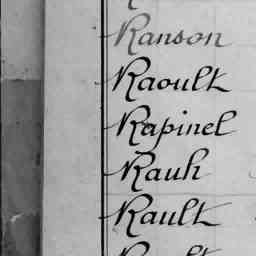 Ranson
Raoult
Rapinel
Rauh
Rault